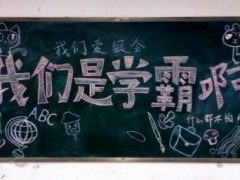 我们爱银合
我们是学霸啊
ABC
什么都不怕